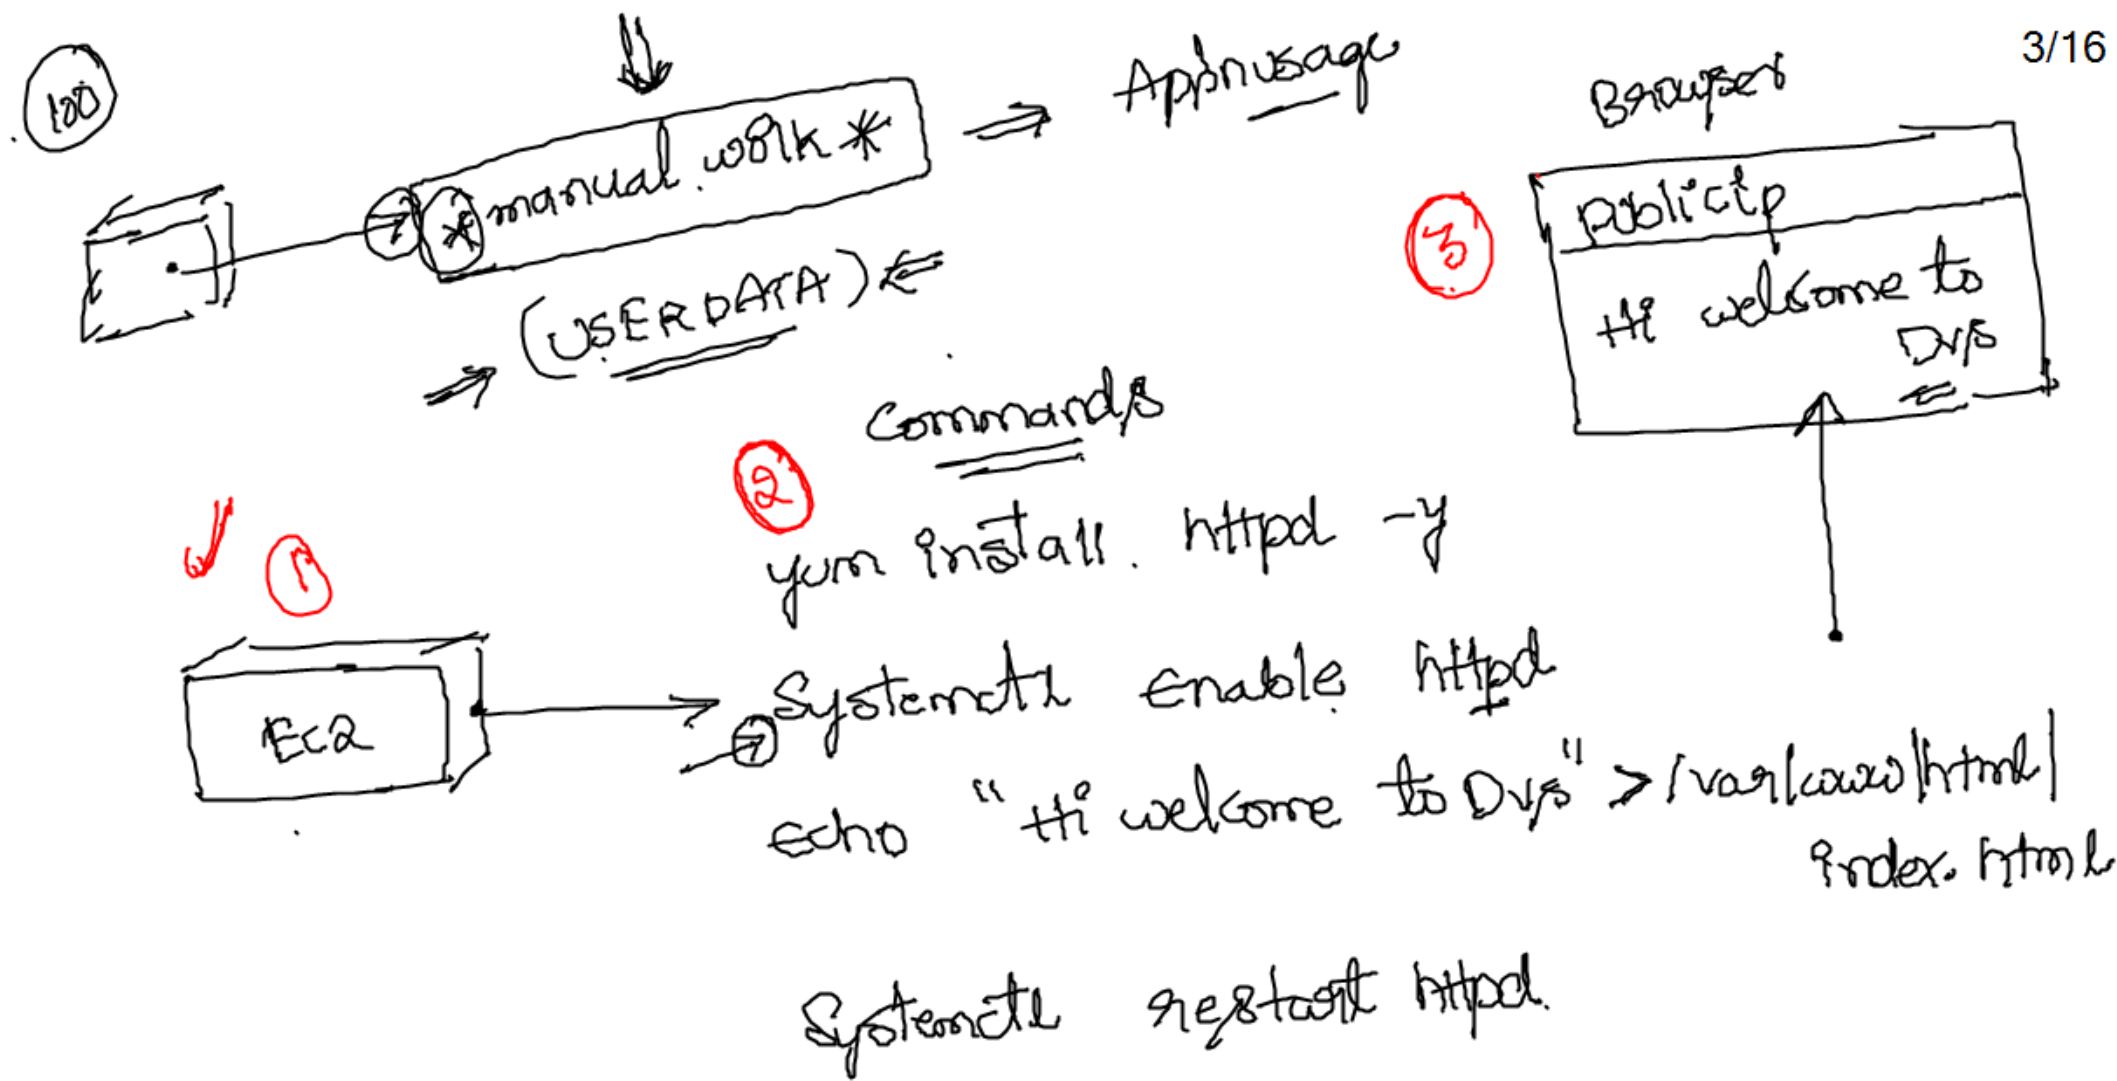 3/16
100
* manual work *
Appln usage
(USERDATA)
Browser
3
Public ip
Hi welcome to
Dvs
Commands
2
yum install httpd -y
1
Ec2
Systemctl enable httpd
Echo "Hi welcome to Dvs" > /var/www/html/
index.html
Systemctl restart httpd